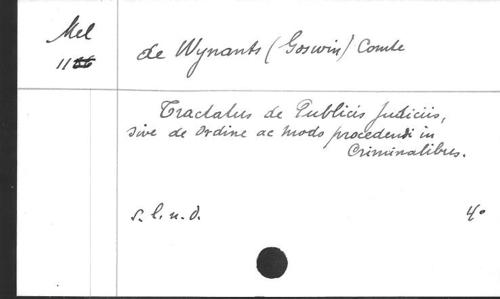 Mel
de Wynants (Goswin) Comte
11
Tractatus de Publicis Judiciis,
sive de Ordine ac modo procedendi in
Criminalibus.
s.l.n.d. 4°